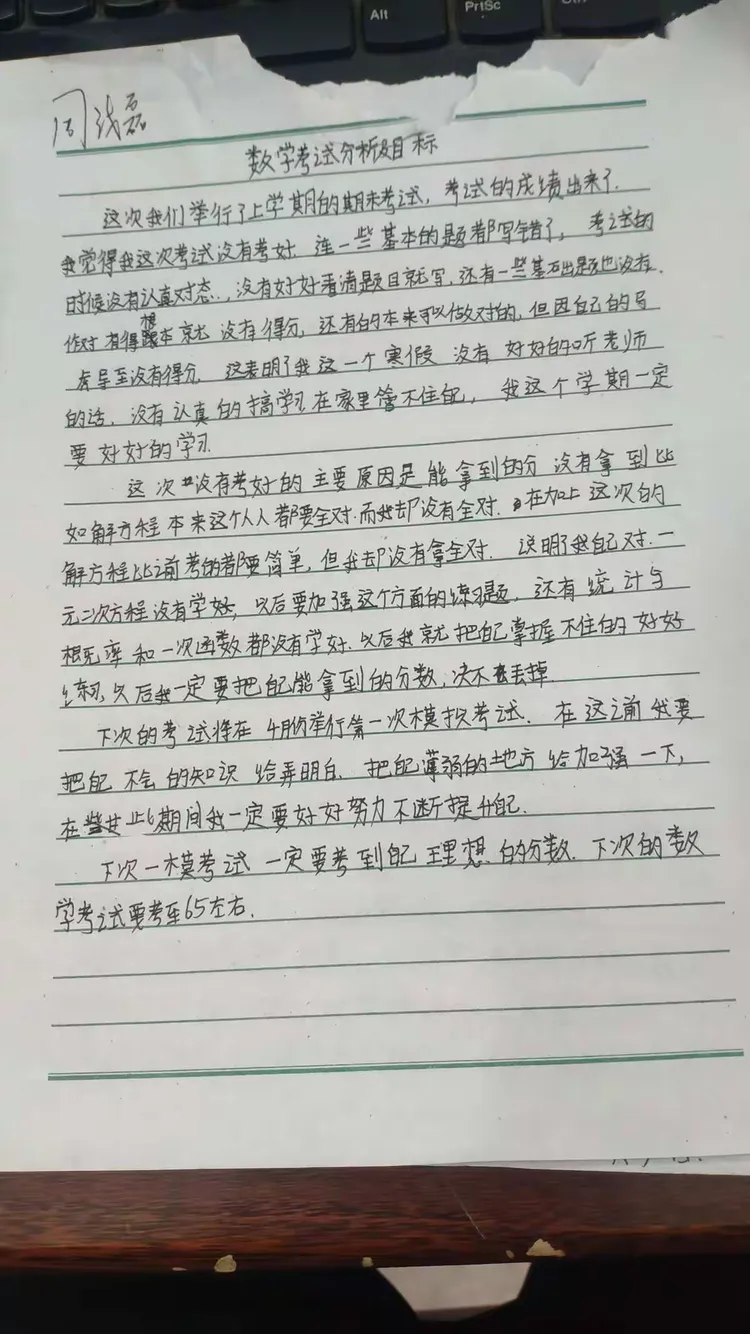 Alt
PrtSc
周 磊
数学考试分析及目标
这次我们举行了上学期的期末考试，考试的成绩出来了.
我觉得我这次考试没有考好.连一些基本的题都写错了，考试的
时候没有认真对态..，没有好好看清题目就写，还有一些基石出题也没有.
作对 有得想本就 没有得分，还有的本来可以做对的，但因自己的马
虎导至没有得分. 这表明了我这一个寒假 没有 好好的听老师
的话，没有认真的搞学习 在家里管不住自己， 我这个学期一定
要 好好的学习.
这次 没有考好的 主要原因是 能拿到的分 没有拿到 比
如解方程 本来这个人人都要全对.而我却没有全对. 在加上 这次的
解方程比之前考的都要简单，但我却没有拿全对. 说明了我自己对.一
元二次方程没有学好，以后要加强这个方面的练习题，还有 统计与
根无率 和一次函数都没有学好.以后我就把自己掌握不住的好好
练习,以后我一定要把自己能拿到的分数,决不丢掉.
下次的考试将在 4月份举行第一次模拟考试. 在这之前我要
把自己 不会的知识 给弄明白. 把自己薄弱的地方给加强一下，
在 此期间我一定要好好努力不断提升自己.
下次一模考试 一定要考到自己 理想 的分数. 下次的数
学考试要考至65左右.